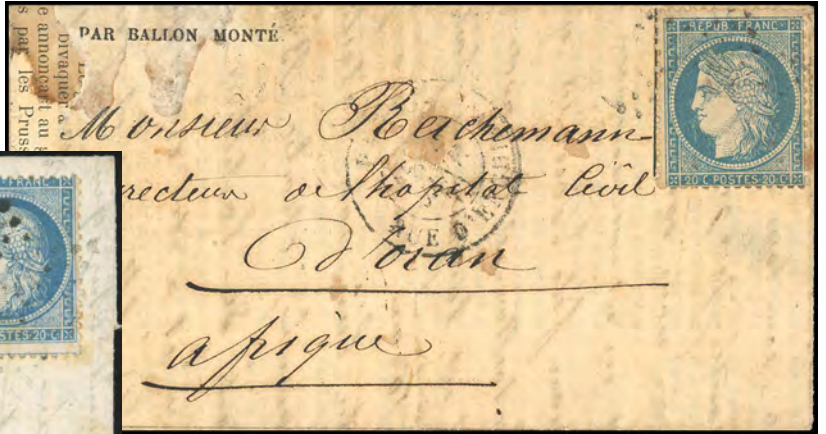 PAR BALLON MONTÉ.
bivaquer
e annonçant au
s par les Pruss
REPUB·FRANC
20·C·POSTES·20·C
Monsieur Reichemann
recteur de l'hopital Civil
RUE D'ENGHIEN
d'oran
afrique
FRANC
STES·20·C